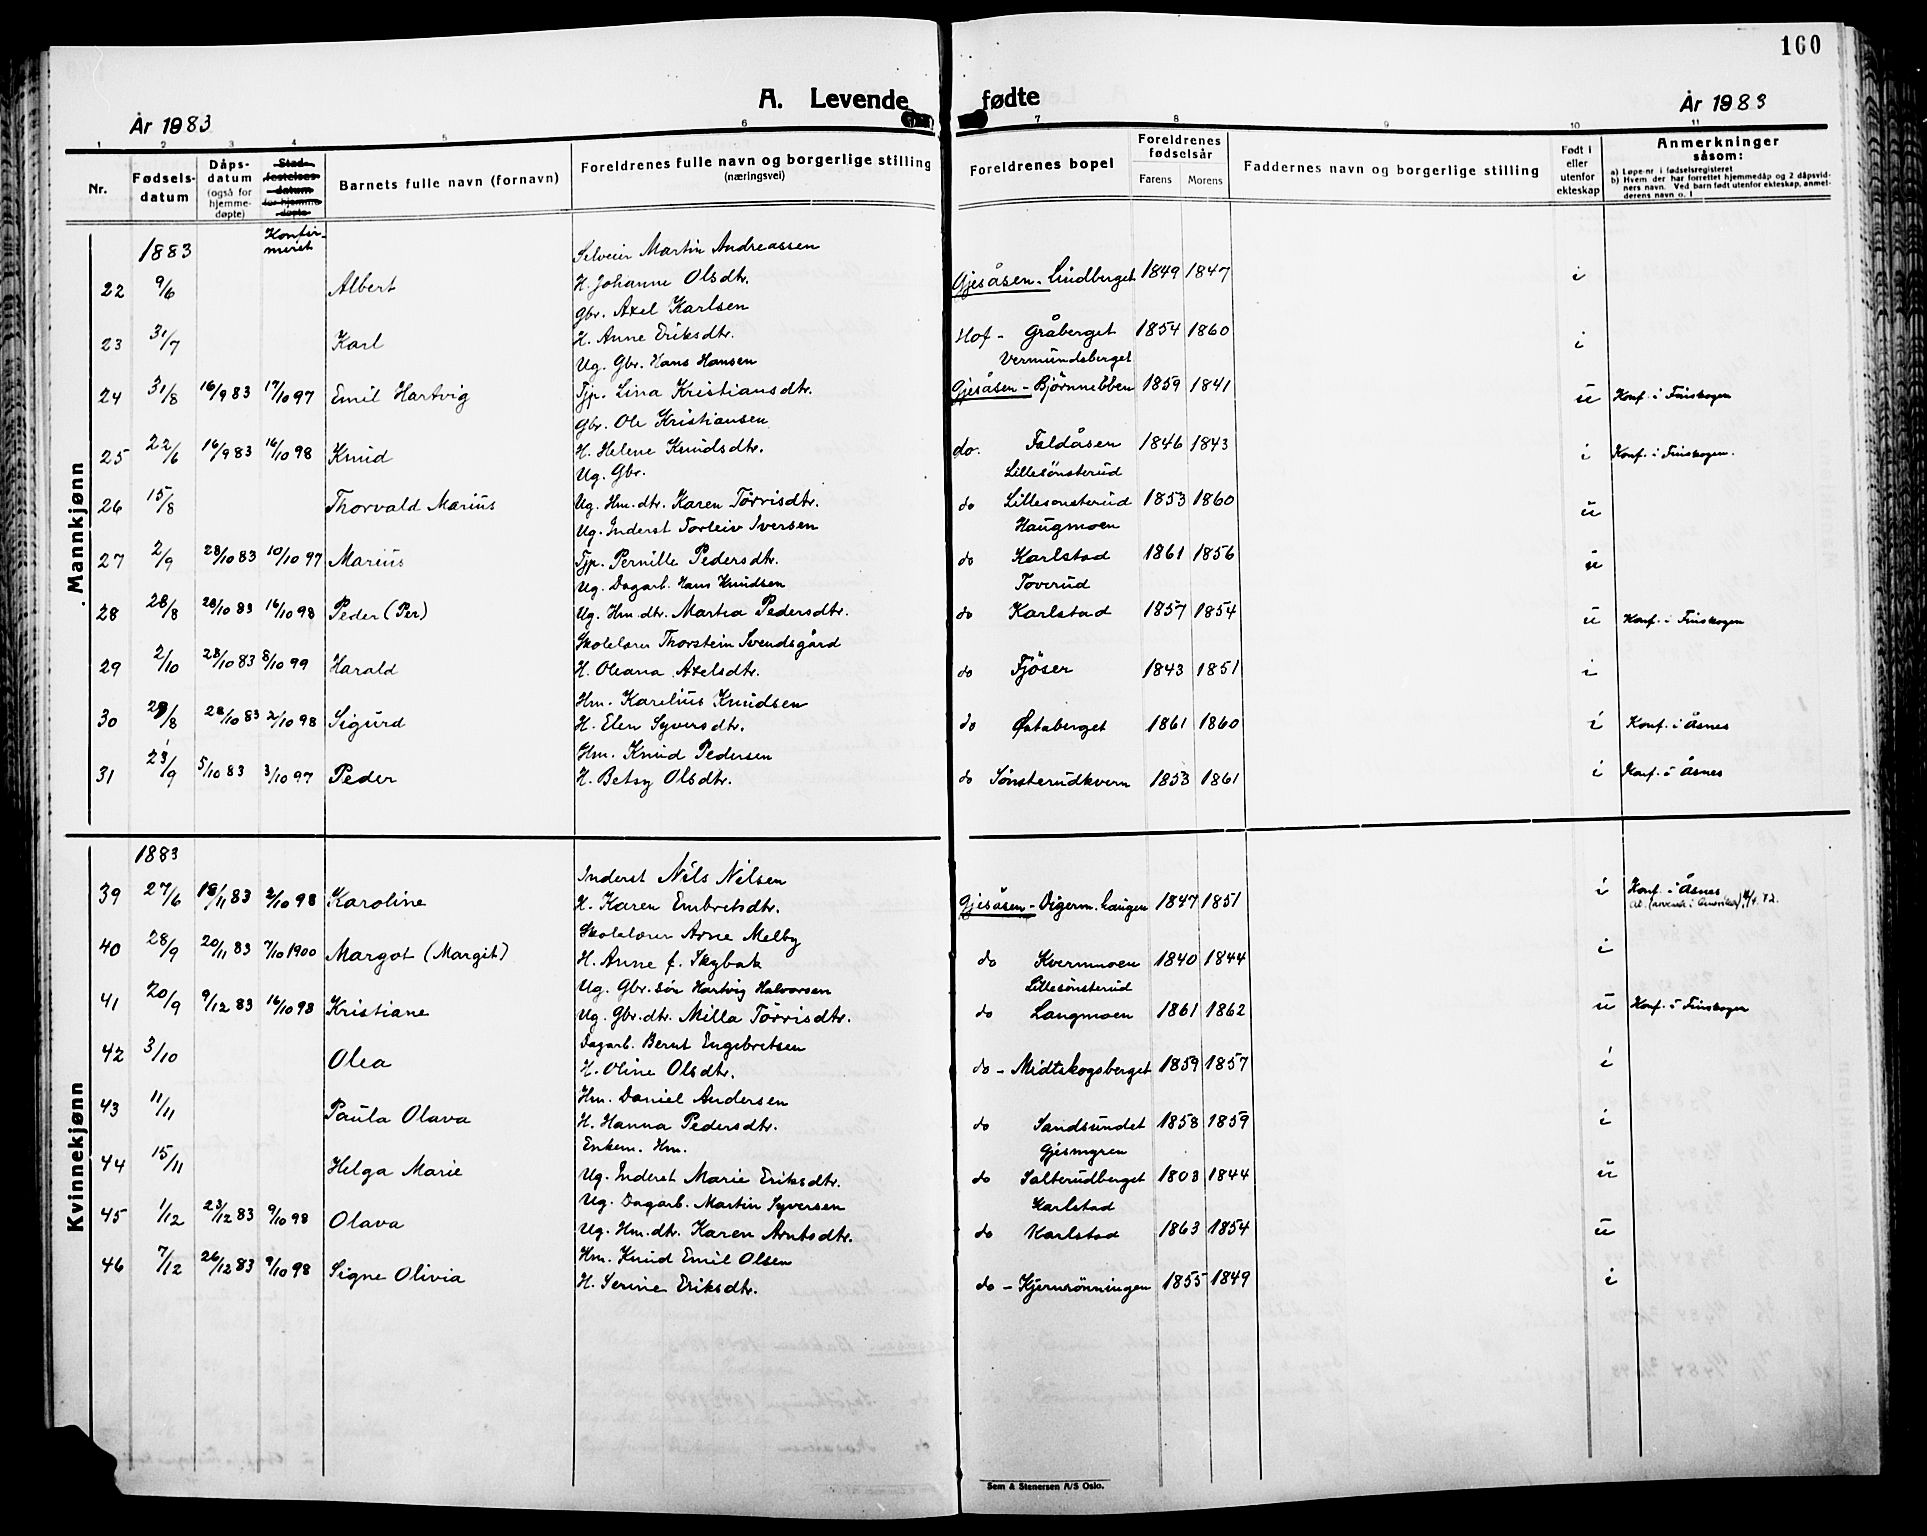 160
A. Levende fødte
År 1883
År 1883
1 2 3 4 5 6 7 8 9 10 11
Nr. Fødsels-datum Dåps-datum (også for hjemme-døpte) Stad-festelses-datum for hjemme-døpte Barnets fulle navn (fornavn) Foreldrenes fulle navn og borgerlige stilling (næringsvei) Foreldrenes bopel Foreldrenes fødselsår Farens Morens Faddernes navn og borgerlige stilling Født i eller utenfor ekteskap Anmerkninger såsom:
a) Løpe-nr i fødselsregisteret
b) Hvem der har forrettet hjemmedåp og 2 dåpsvidners navn. Ved barn født utenfor ekteskap, anmelderens navn o. l
Mannkjønn
1883 Konfir-meret
Selveier Martin Andreassen
22 9/6 Albert H. Johanne Olsdtr. Gjesåsen - Lindberget 1849 1847 i
Gbr. Axel Karlsen
23 31/7 Karl H. Anne Eriksdtr. Hof - Gråberget 1854 1860 i
Ug. Gbr. Hans Hansen Vermundsberget
24 31/8 16/9 83 17/10 97 Emil Hartvig Tjp. Lina Kristiansdtr. Gjesåsen - Bjørnnebben 1859 1841 u Konf. i Finskogen
Gbr. Ole Kristiansen
25 22/6 16/9 83 16/10 98 Knud H. Helene Knudsdtr. do. Faldåsen 1846 1843 i Konf. i Finskogen.
Ug. Gbr. Lillesønsterud
26 15/8 Thorvald Marius Ug. Hm. dtr. Karen Tørrisdtr. do Lillesønsterud 1853 1860 u
Ug. Inderst Torleiv Iversen Haugmoen
27 2/9 28/10 83 10/10 97 Marius Tjp. Pernille Pedersdtr. do Karlstad 1861 1856 u
Ug. Dagarb. Hans Knudsen Toverud
28 28/8 28/10 83 16/10 98 Peder (Per) Ug. Hm. dtr. Martea Pedersdtr. do Karlstad 1857 1854 u Konf. i Finskogen
Skolelærer Thorstein Svendsgård
29 2/10 28/10 83 8/10 99 Harald H. Oleana Axelsdtr. do Fjöser 1843 1851 i
Hm. Karelius Knudsen
30 29/8 28/10 83 2/10 98 Sigurd H. Elen Syversdtr. do Østaberget 1861 1860 i Konf. i Åsnes
Hm. Knud Pedersen
31 23/9 5/10 83 3/10 97 Peder H. Betsy Olsdtr. do Sønsterudkvern 1853 1861 i Konf. i Åsnes
Kvinnekjønn
1883
Inderst Nils Nilsen
39 27/6 18/11 83 2/10 98 Karoline H. Karen Embretsdtr. Gjesåsen - Vigerm. Haugen 1847 1851 i Konf. i Åsnes
Skolelærer Arne Melby
40 28/9 20/11 83 7/10 1900 Margot (Margit) H. Anne f. Skybak do Kvernmoen 1840 1844 i
Ug. Gbr. søn Hartvig Halvorsen Lillesønsterud
41 20/9 9/12 83 16/10 98 Kristiane Ug. Gbr. dtr. Milla Tørrisdtr. do Langmoen 1861 1862 u Konf. i Finskogen
Dagarb. Bernt Engebretsen
42 3/10 Olea H. Oline Olsdtr. do - Midtskogsberget 1859 1857 i
Hm. Daniel Andersen
43 11/11 Paula Olava H. Hanna Pedersdtr. do Sandsundet 1858 1859 i
Enkem. Hm. Gjesmyren
44 15/11 Helga Marie Ug. Inderst Marie Eriksdtr. do Salterudberget 1803 1844 u
Ug. Dagarb. Martin Syversen Karlstad
45 1/12 23/12 83 9/10 98 Olava Ug. Hm. dtr. Karen Arntsdtr. do Karlstad 1863 1854 u
Hm. Knud Emil Olsen
46 7/12 26/12 83 9/10 98 Signe Olivia H. Serine Eriksdtr. do - Kjernrönningen 1855 1849 i
Sem & Stenersen A/S Oslo.